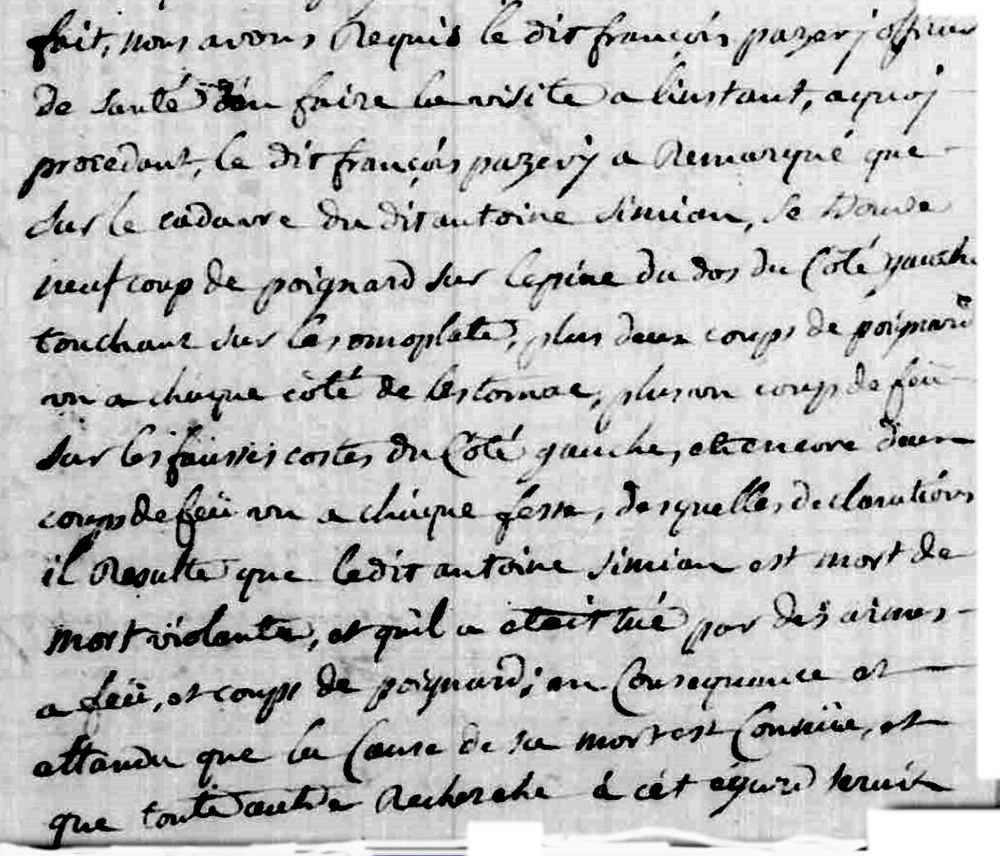 fait, nous avons Requis le dit françois pazery officier
de santé d'en faire la visite a linstant, a quoj
procedant, le dit françois pazery a Remarqué que
sur le cadavre du dit antoine simian, se trouve
neuf coup de poignard sur lepine du dos du Coté gauche
touchant sur les omoplate, plus deux coups de poignard
un a chaque côté de lestomac, plus un coup de feü
sur les fausses costes du Côté gauche, et encore deux
coups de feü un a chaque fesse, desquelles declarations
il Resulte que ledit antoine simian est mort de
mort violante, et quil a etait tué par des armes
a feü, et coups de poignard; en Consequance et
attandu que la Cause de sa mort est Connüe, et
que toute autre Recherche à cét égard serait